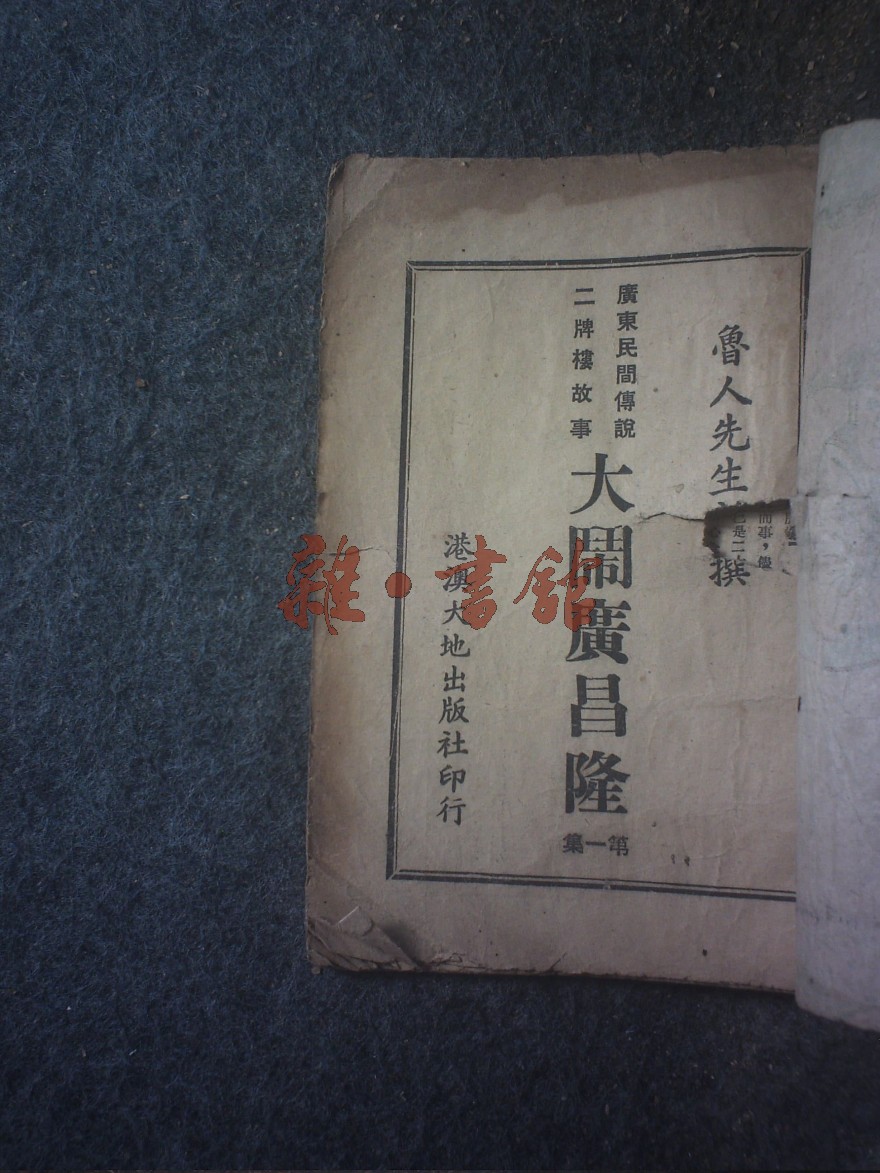 魯人先生
撰
廣東民間傳說
二牌樓故事
大鬧廣昌隆
第一集
港澳大地出版社印行
而事，
是二
雜·書館